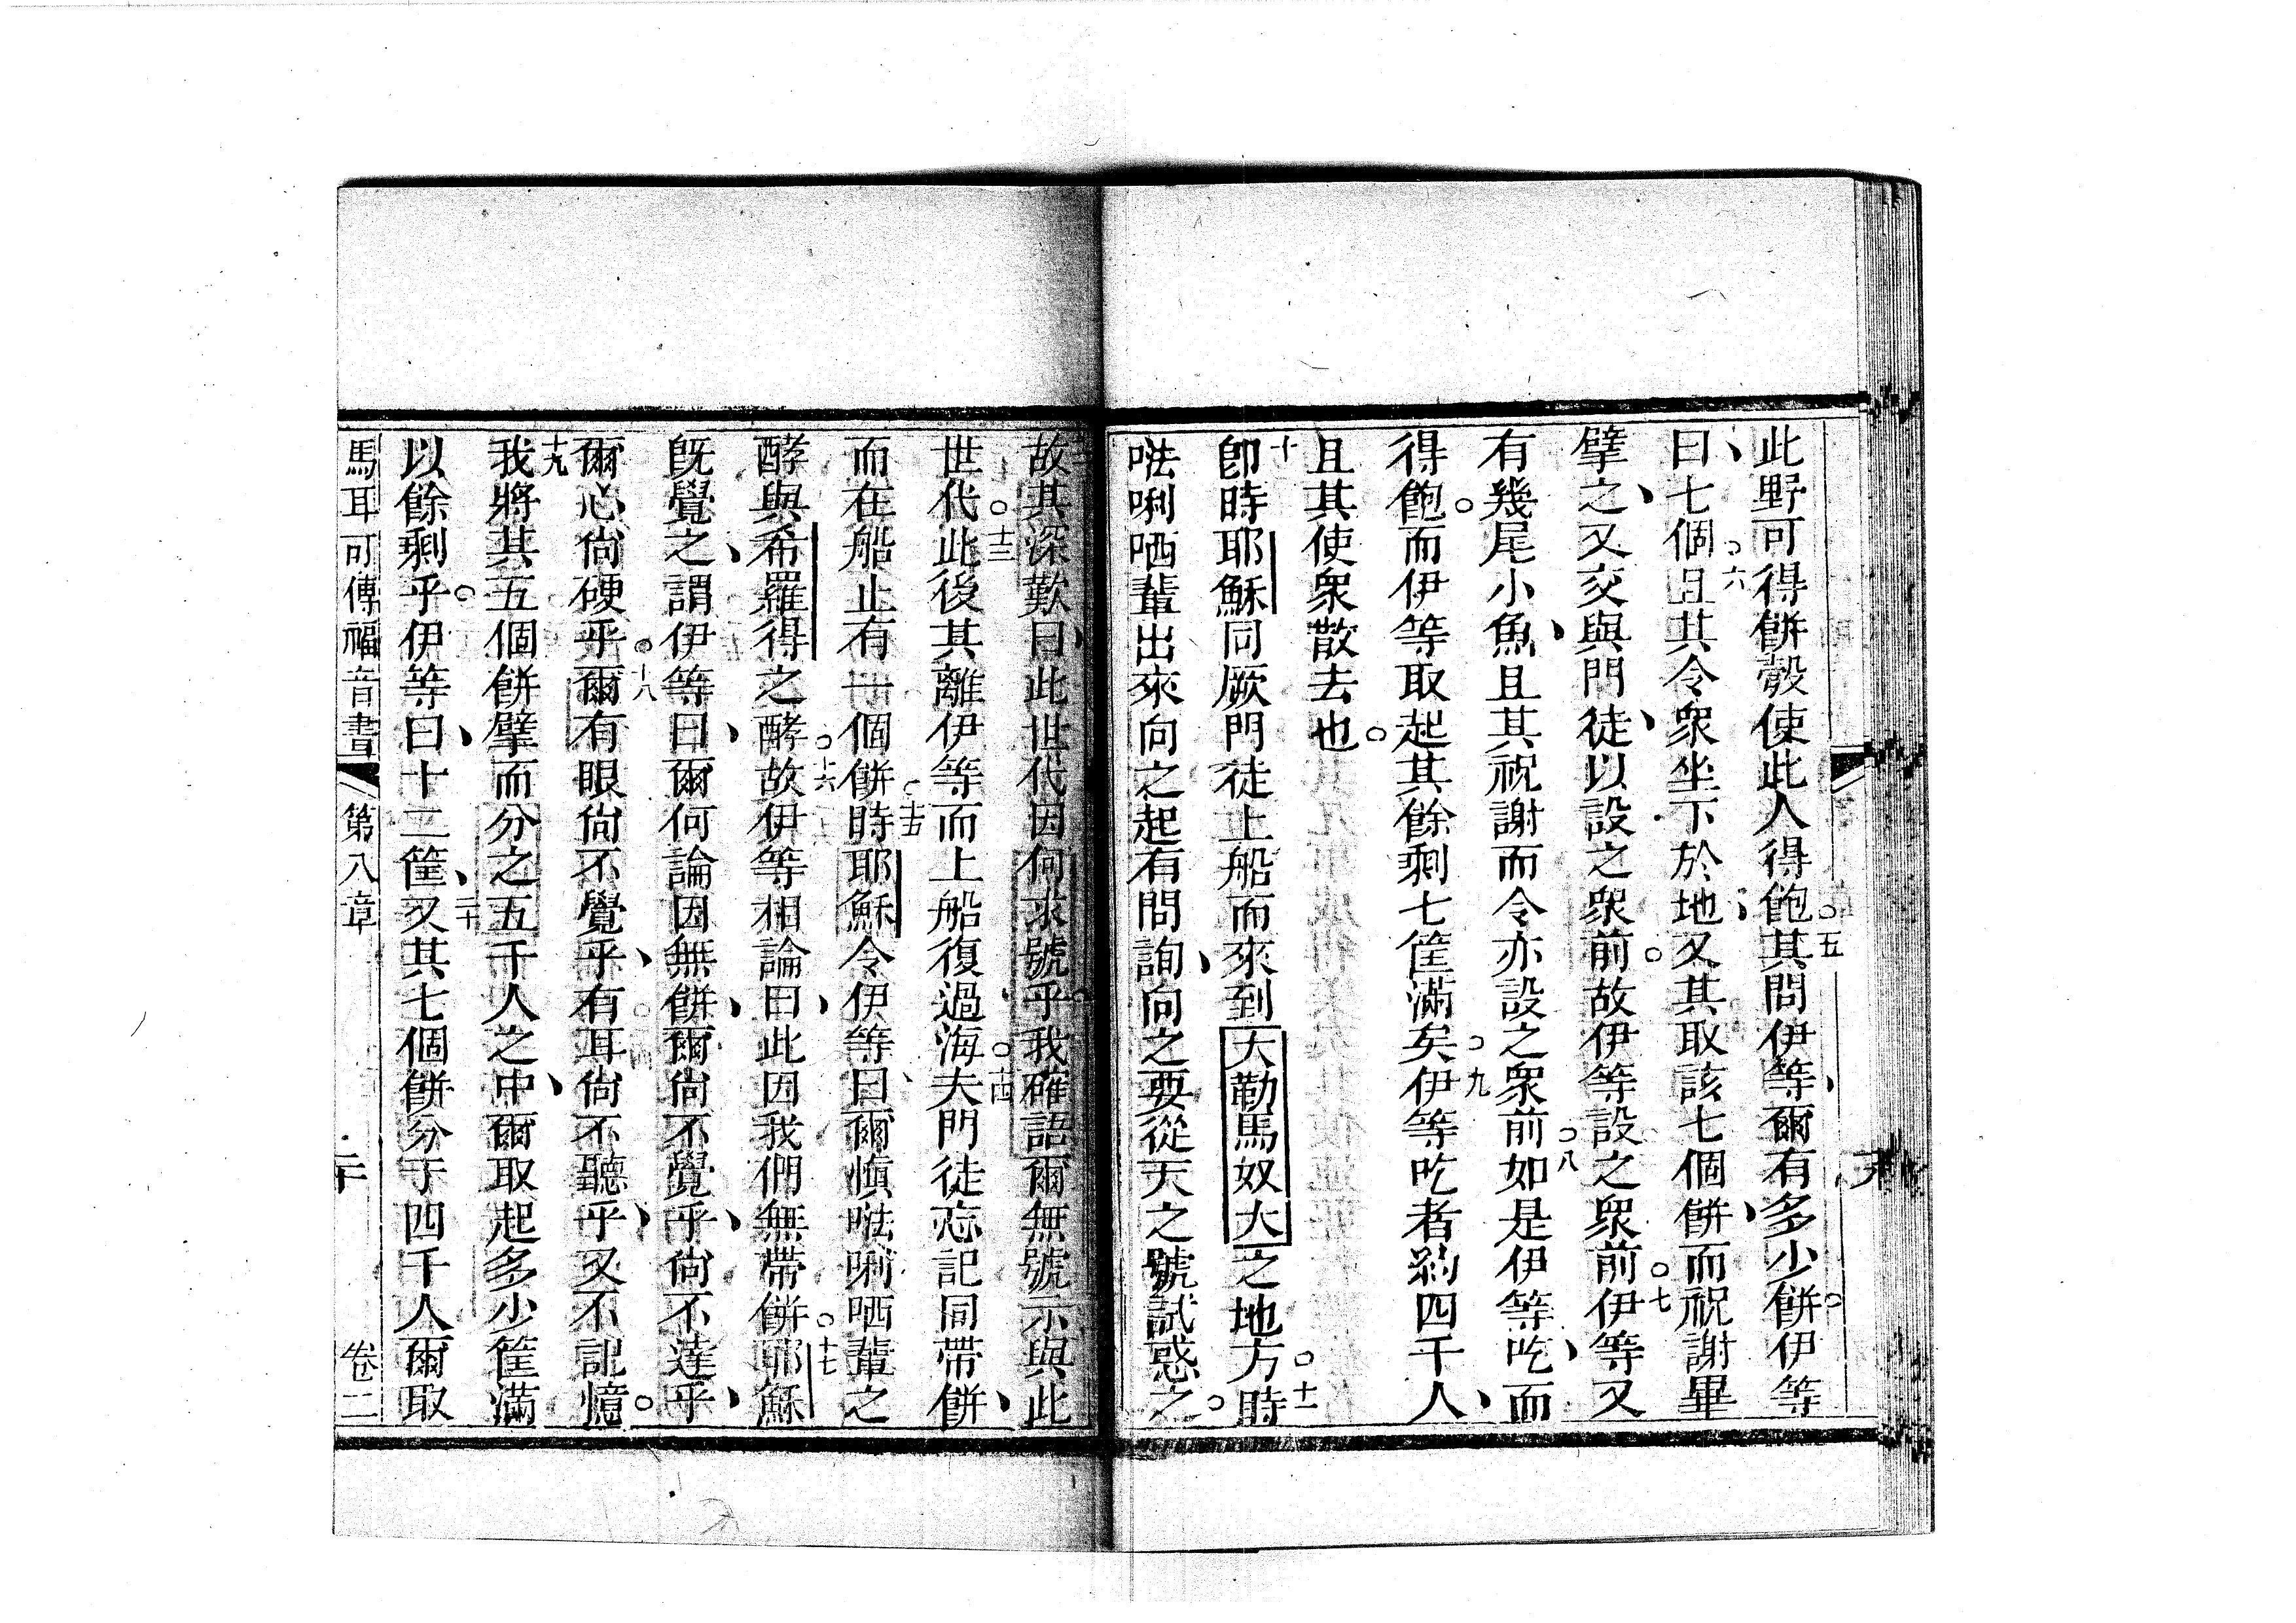 此野可得餅彀使此人得飽○五其問伊等、爾有多少餅○伊等
曰、七個○六且其令衆坐下於地、又其取該七個餅、而祝謝畢
擘之、又交與門徒、以設之衆前○故伊等設之衆前○七伊等又
有幾尾小魚、且其祝謝而令亦設之衆前○八如是伊等吃、而
得飽○而伊等取起其餘剩七筐滿矣○九伊等吃者約四千人、
且其使衆散去也○
十卽時耶穌同厥門徒上船而來到大勒馬奴大之地方○十一時
𠵽唎哂輩出來向之起有問詢、向之要從天之號試惑之○
故其深歎、曰此世代因何求號乎○我確語爾無號示與此
世代○十三此後其離伊等而上船復過海○十四夫門徒忘記同帶餅、
而在船止有一個餅○十五時耶穌令伊等曰、爾愼𠵽唎哂輩之
酵與希羅得之酵○十六故伊等相論曰、此因我們無帶餅○十七耶穌
旣覺之、謂伊等曰、爾何論因無餅、爾尙不覺乎、尙不達乎、
爾心尙硬乎○十八爾有眼尙不覺乎、有耳尙不聽乎、又不記憶○
十九我將其五個餅擘而分之五千人之中、爾取起多少筐滿
以餘剩乎○伊等曰、十二筐、二十又其七個餅分于四千人爾取
馬耳可傳福音書 第八章 二十 卷二